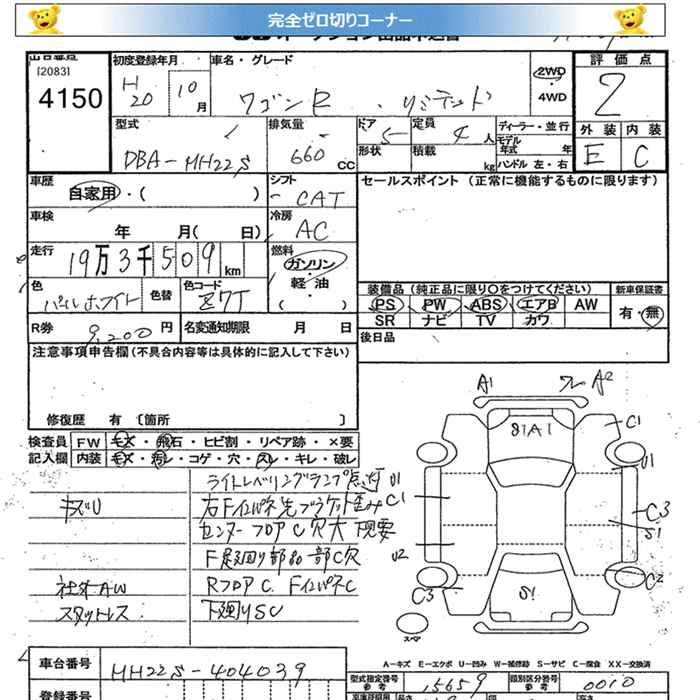 完全ゼロ切りコーナー
[2083]
4150
初度登録年月
H
20
10
月
車名・グレード
ワゴンR リミテッド
2WD
4WD
評価点
2
外装 内装
E C
型式
DBA-MH22S
排気量
660 CC
ドア
5
定員
4 人
形状
積載 kg
ディーラー・並行
モデル年式 年
ハンドル 左・右
車歴
自家用・( )
シフト
CAT
セールスポイント(正常に機能するものに限ります)
車検
年 月( 日)
冷房
AC
走行
19万3千509km
燃料
ガソリン
・
軽・油
( )
色
パールホワイト
色替
色コード
Z7T
装備品(純正品に限り〇をつけてください)
PS PW ABS エアB AW
SR ナビ TV カワ
新車保証書
有・無
R券
9,200 円
名変通知期限 月 日
後日品
注意事項申告欄(不具合内容等は具体的に記入して下さい)
修復歴 有 〔箇所 〕
検査員
記入欄
FW キズ・飛石・ヒビ割・リペア跡・×要
内装 キズ・汚レ・コゲ・穴・スレ・キレ・破レ
キズU
社外AW
スタットレス
ライトレベリングランプ点灯
右Fインパネ先ブラケット歪み
センターフロアC穴大 下視要
F足廻り部品部C穴
RフロアC FインパネC
下廻りSC
A1
フレ A2
S1A1
C1
U1
U1
C1
C3
S1
U2
C3
C2
S1
スペア
A-キズ E-エクボ U-凹み W-補修跡 S-サビ C-腐食 XX-交換済
車台番号
MH22S-404039
登録番号
型式指定番号
参考
15659
類別区分番号
参考
0010